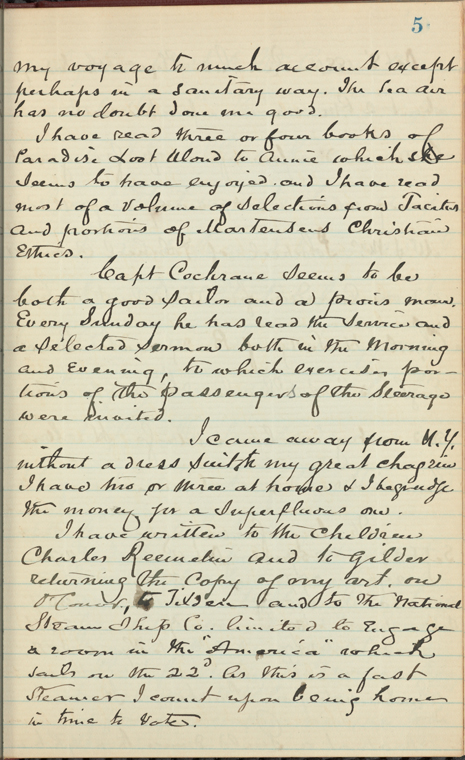 5.
my voyage to much account except
perhaps in a sanitary way. The sea air
has no doubt done me good.
I have read three or four books of
Paradise Lost aloud to Annie which she
seems to have enjoyed and I have read
most of a volume of selections from Tacitus
and portions of Martensens Christian
Ethics.
Capt Cochrane seems to be
both a good sailor and a pious man.
Every Sunday he has read the service and
a selected sermon both in the Morning
and Evening, to which exercises por-
tions of the passengers of the Steerage
were invited.
I came away from N.Y.
without a dress suit to my great chagrin
I have two or three at home & I begrudge
the money for a superfluous one.
I have written to the children
Charles Reemelin and to Gilder
returning the copy of my art. on
O'Conor, to Tilden and to the National
Steam Ship Co. limited to engage
a room in the "America" which
sails on the 22d. As this is a fast
steamer I count upon being home
in time to vote.